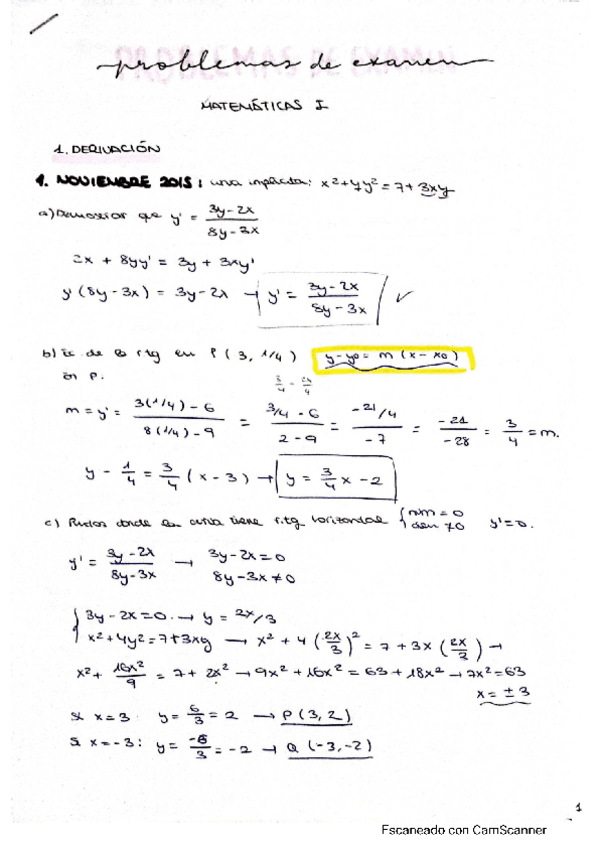 problemas de examen
MATEMÁTICAS I
1. DERIVACIÓN
1. NOVIEMBRE 2015: curva implícita: x²+4y² = 7+3xy
a) Demostrar que y' = (3y-2x)/(8y-3x)
2x + 8yy' = 3y + 3xy'
y'(8y-3x) = 3y-2x → y' = (3y-2x)/(8y-3x) ✓
b) Ec de la rtg en P(3, 1/4) y-y0 = m(x-x0)
en P.
3/4 - 24/4
m = y' = (3(1/4)-6)/(8(1/4)-9) = (3/4-6)/(2-9) = (-21/4)/(-7) = -21/-28 = 3/4 = m.
y - 1/4 = 3/4 (x-3) → y = 3/4 x - 2
c) Puntos donde la curva tiene r.tg horizontal { num = 0 y'=0.
den ≠0
y' = (3y-2x)/(8y-3x) → 3y-2x = 0
8y-3x ≠ 0
{ 3y-2x=0. → y = 2x/3
x²+4y²=7+3xy → x² + 4(2x/3)² = 7 + 3x(2x/3) →
x² + 16x²/9 = 7 + 2x² → 9x² + 16x² = 63 + 18x² → 7x² = 63
x = ± 3
Si x=3. y = 6/3 = 2 → P(3,2)
Si x=-3: y = -6/3 = -2 → Q(-3,-2)
1
Escaneado con CamScanner